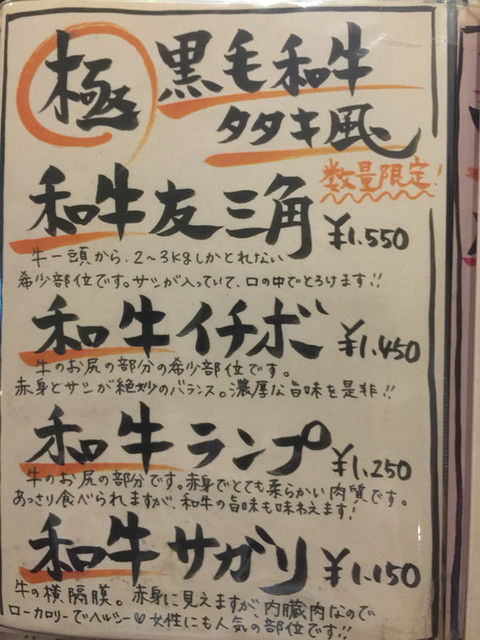 極 黒毛和牛
タタキ風
数量限定!
和牛友三角 ¥1.550
牛一頭から、2〜3kgしかとれない
希少部位です。サシが入っていて、口の中でとろけます!!
和牛イチボ ¥1.450
牛のお尻の部分の希少部位です。
赤身とサシが絶妙のバランス。濃厚な旨味を是非!!
和牛ランプ ¥1.250
牛のお尻の部分です。赤身でとても柔らかい肉質です。
あっさり食べられますが、和牛の旨味も味わえます!
和牛サガリ ¥1.150
牛の横隔膜。赤身に見えますが、内臓肉なので
ローカロリーでヘルシー♡女性にも人気の部位です!!